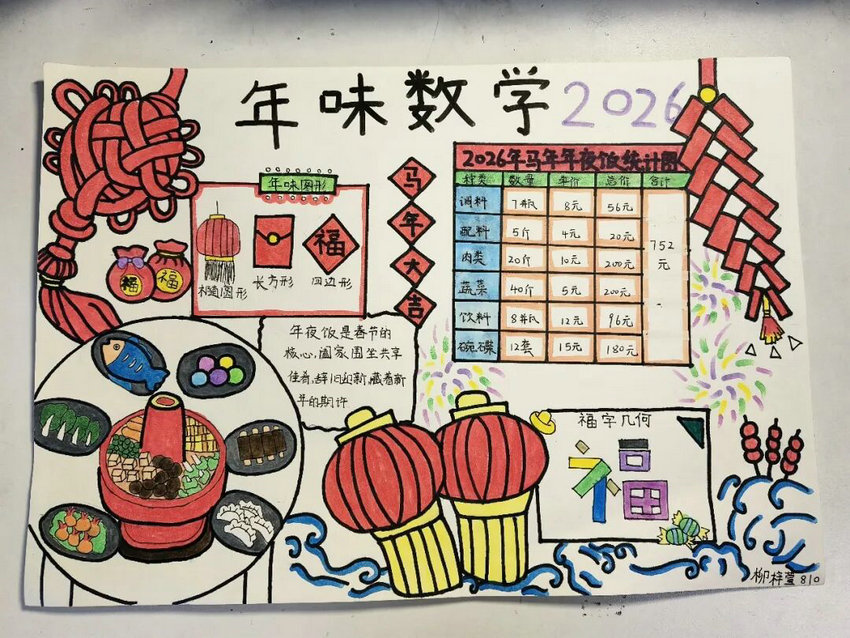 年味数学2026
年味图形
椭圆形
长方形
福
四边形
福
福
马年大吉
2026年马年年夜饭统计图
种类 数量 单价 总价 合计
调料 7瓶 8元 56元
配料 5斤 4元 20元
肉类 20斤 10元 200元
蔬菜 40斤 5元 200元
饮料 8瓶 12元 96元
碗碟 12套 15元 180元
752元
年夜饭是春节的
核心,阖家围坐共享
佳肴,辞旧迎新,藏着新
年的期许
福字几何
福
柳梓萱 810